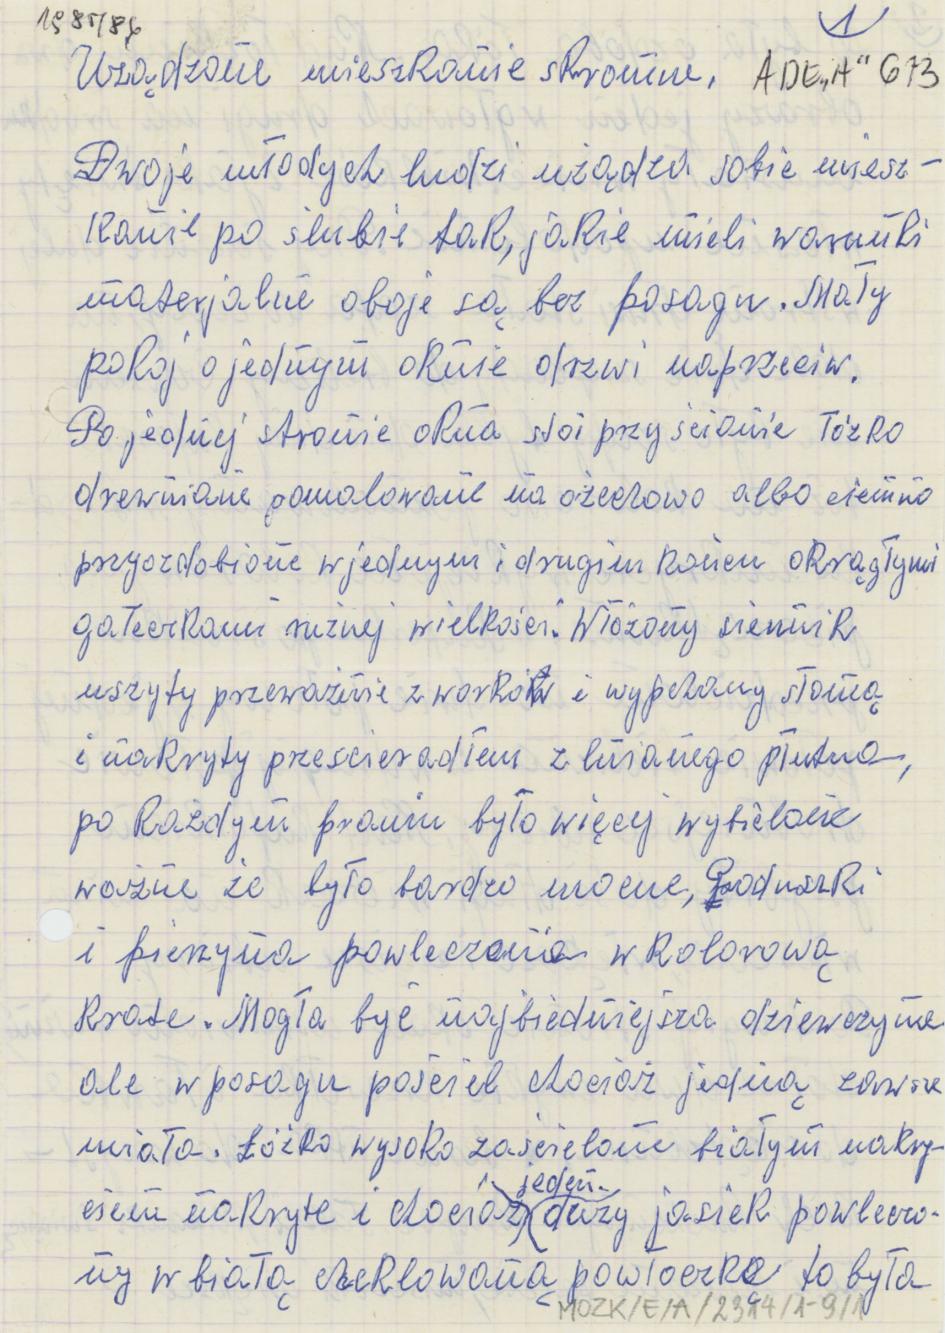 1985/86
1
Użądzone mieszkanie skromne. ADE„A" 673
Dwoje młodych ludzi użądza sobie miesz-
kanie po ślubie tak, jakie mieli warunki
materjalne oboje są bez posagu. Mały
pokoj o jednym oknie drzwi naprzeciw.
Po jednej stronie okna stoi przy ścianie łózko
drewniane pomalowane na ożechowo albo ciemno
przyozdobione w jednym i drugim końcu okrągłymi
gałeczkami rużnej wielkości. Włożony siennik
uszyty przeważnie z worków i wypchany słomą
i nakryty prescieradłem z lnianego płutna,
po każdym praniu było więcej wybielone
ważne że było bardzo mocne, Poduszki
i pierzyna powleczona w kolorową
krate. Mogła być najbiedniejsza dziewczyna
ale w posagu pościel chociaż jedną zawsze
miała. Łóżko wysoko zaścielone białym nakry-
ciem nakryte i chociaż jeden duży jasiek powleczo-
ny w białą cheklowaną powłoczkę to była
MOZK/E/A/2314/1-9/1